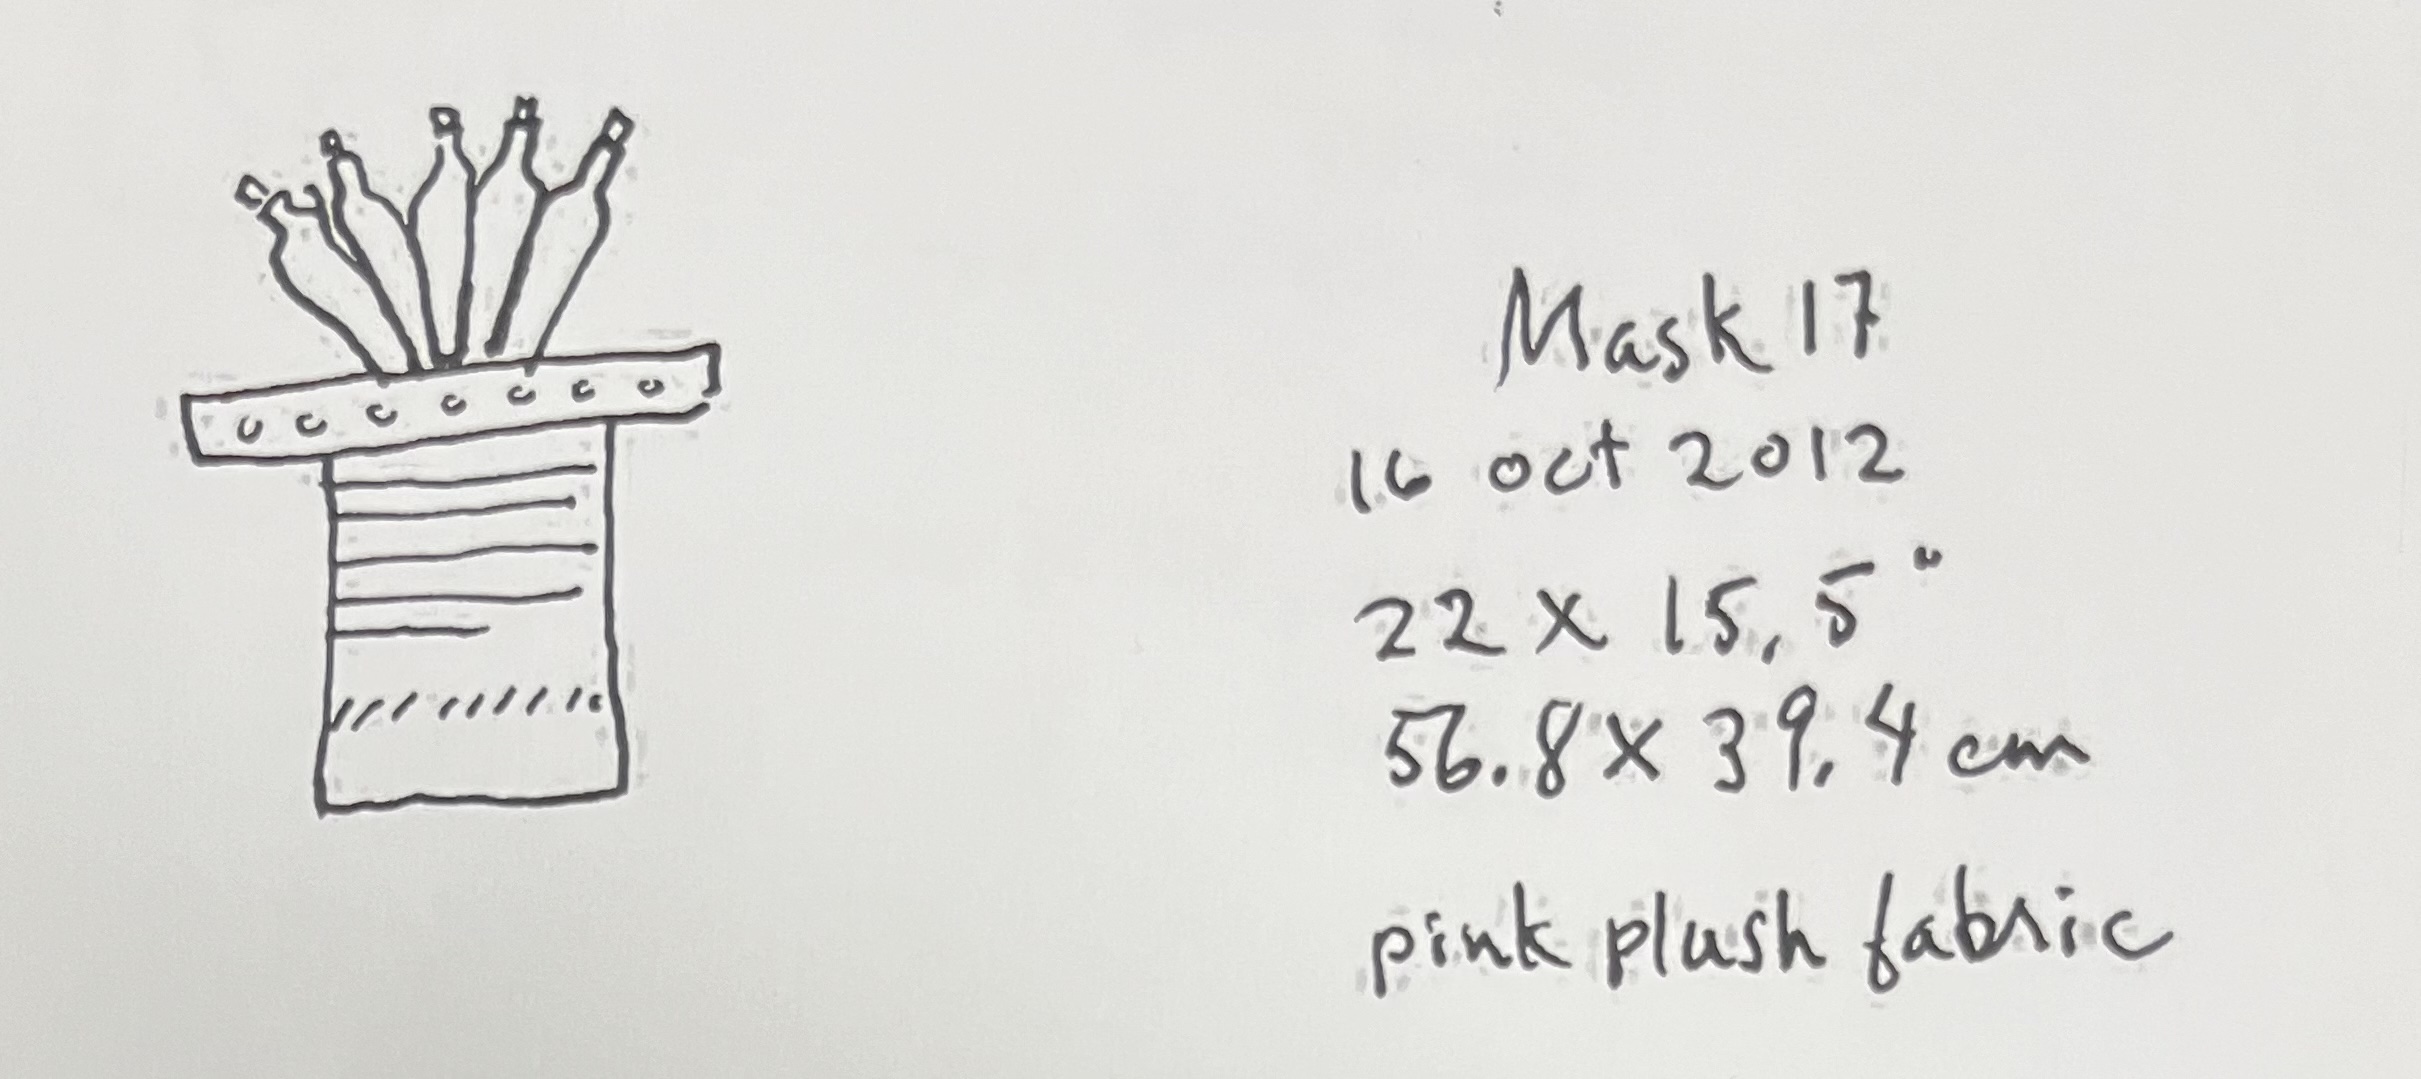 Mask 17
16 oct 2012
22 x 15,5"
56.8 x 39.4 cm
pink plush fabric